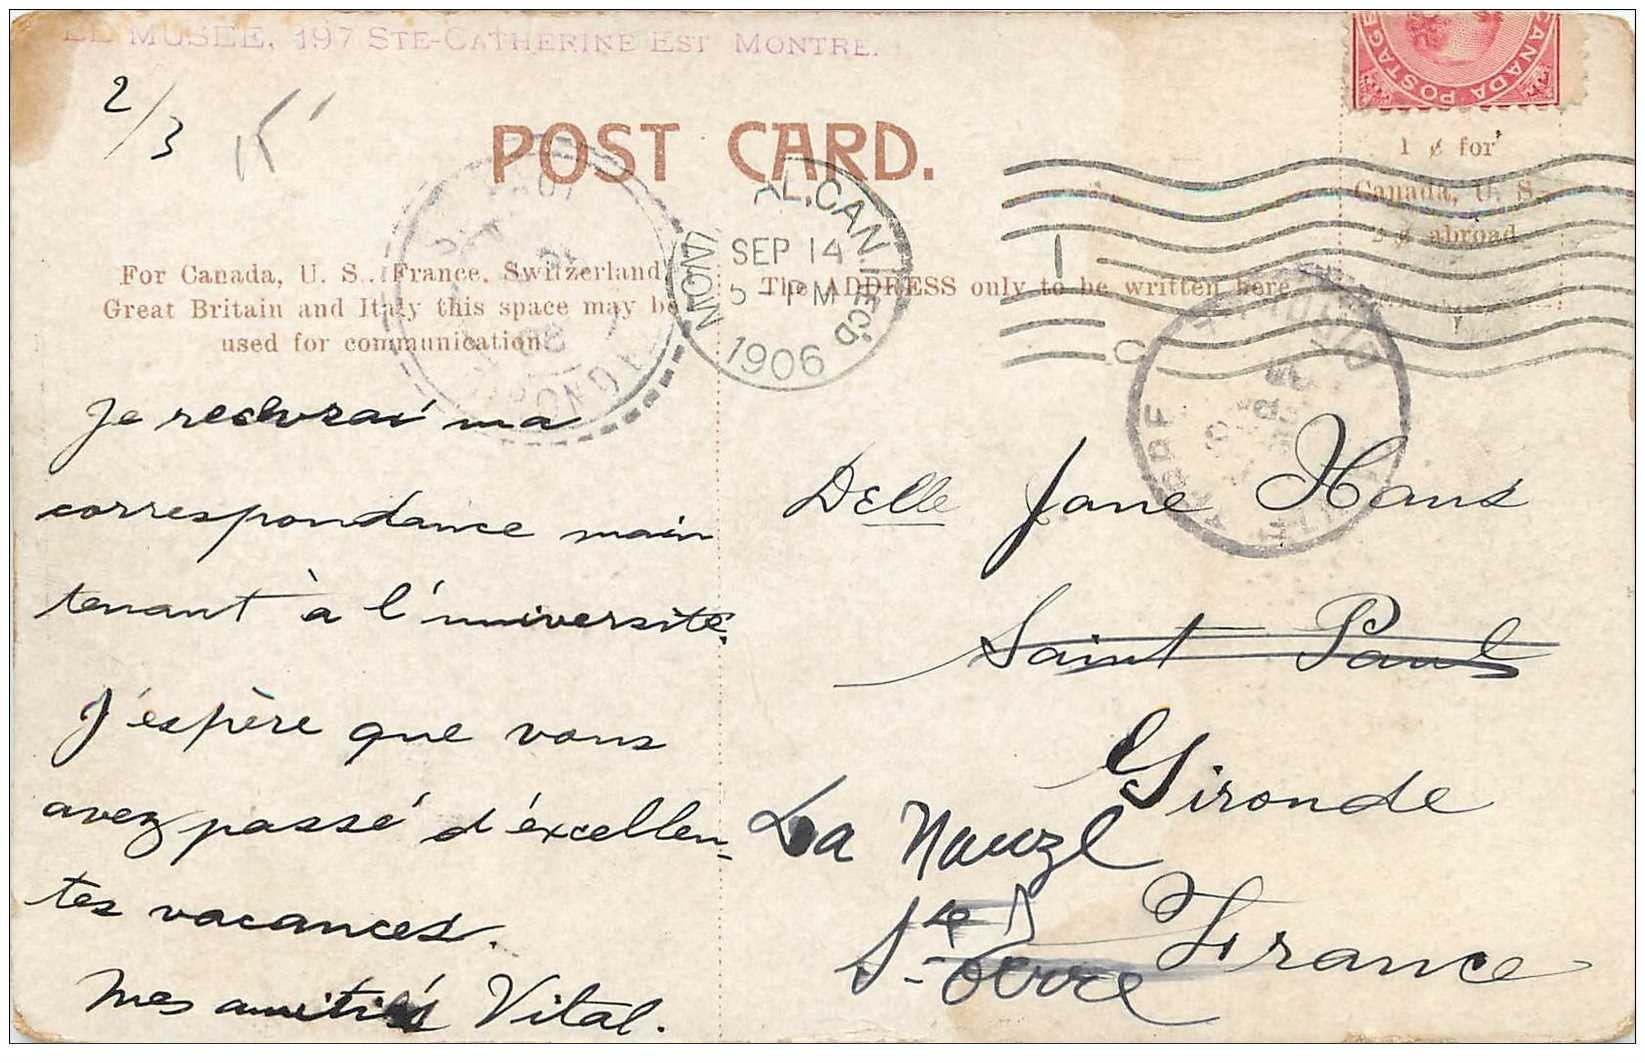 LE MUSEE, 197 STE-CATHERINE EST MONTRE.
2/3
CANADA POSTAGE
POST CARD.
1 ¢ for
Canada, U. S.,
2 ¢ abroad
MONTREAL, CAN REC'D
SEP 14
5 - PM
1906
For Canada, U. S., France, Switzerland
Great Britain and Italy this space may be
used for communication.
The ADDRESS only to be written here.
Je recevrai ma
correspondance main
tenant à l'université.
J'espère que vous
avez passé d'éxcellen-
tes vacances.
Mes amitiés Vital.
Delle Jane Hans
Saint Paul
Gironde
La Nauze
France